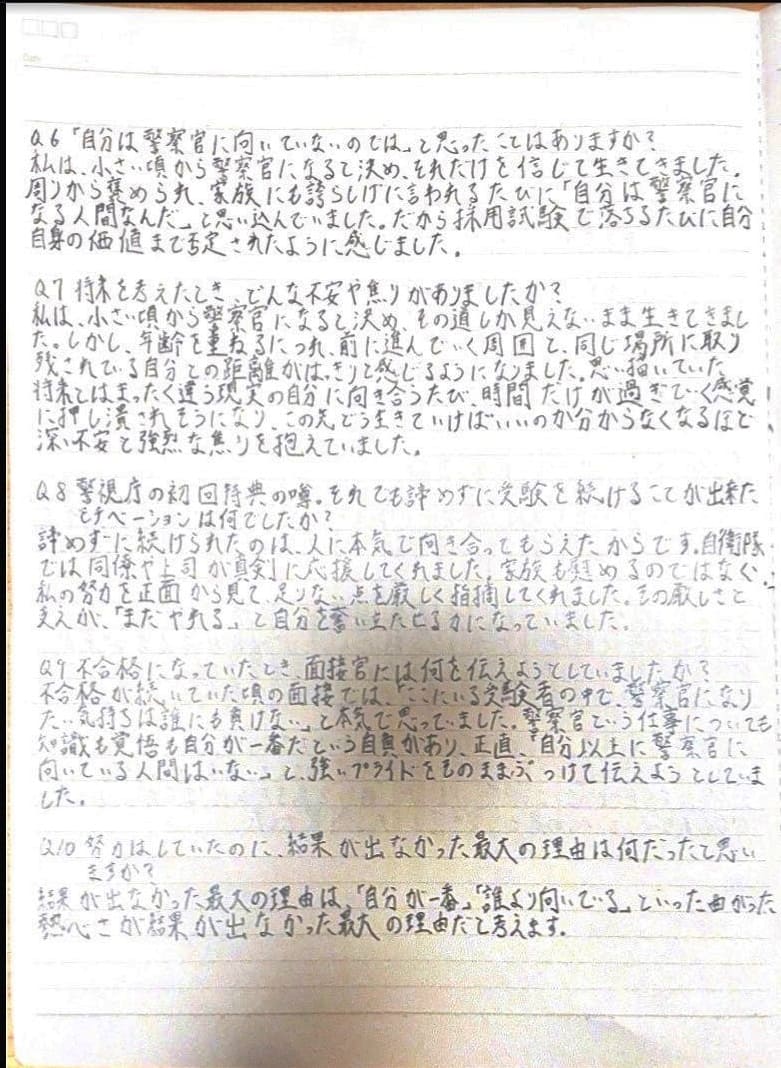 Q6「自分は警察官に向いていないのでは」と思ったことはありますか？
私は、小さい頃から警察官になると決め、それだけを信じて生きてきました。
周りから褒められ、家族にも誇らしげに言われるたびに「自分は警察官に
なる人間なんだ」と思い込んでいました。だから採用試験で落ちるたびに自分
自身の価値まで否定されたように感じました。
Q7 将来を考えたとき、どんな不安や焦りがありましたか？
私は、小さい頃から警察官になると決め、その道しか見えないまま生きてきまし
た。しかし、年齢を重ねるにつれ、前に進んでいく周囲と、同じ場所に取り
残されている自分との距離がはっきりと感じるようになりました。思い描いていた
将来とはまったく違う現実の自分に向き合うたび、時間だけが過ぎていく感覚
に押し潰されそうになり、この先どう生きていけばいいのか分からなくなるほど
深い不安と強烈な焦りを抱えていました。
Q8 警視庁の初回特典の噂。それでも諦めずに受験を続けることが出来た
モチベーションは何でしたか？
諦めずに続けられたのは、人に本気で向き合ってもらえたからです。自衛隊
では同僚や上司が真剣に応援してくれました。家族も慰めるのではなく、
私の努力を正面から見て、足りない点を厳しく指摘してくれました。その厳しさと
支えが、「まだやれる」と自分を奮い立たせる力になっていました。
Q9 不合格になっていたとき、面接官には何を伝えようとしていましたか？
不合格が続いていた頃の面接では、「ここにいる受験者の中で、警察官になり
たい気持ちは誰にも負けない」と本気で思っていました。警察官という仕事についても
知識も覚悟も自分が一番だという自負があり、正直、「自分以上に警察官に
向いている人間はいない」と、強いプライドをそのままぶつけて伝えようとしていま
した。
Q10 努力はしていたのに、結果が出なかった最大の理由は何だったと思い
ますか？
結果が出なかった最大の理由は、「自分が一番」「誰より向いてる」といった曲がった
熱心さが結果が出なかった最大の理由だと考えます。